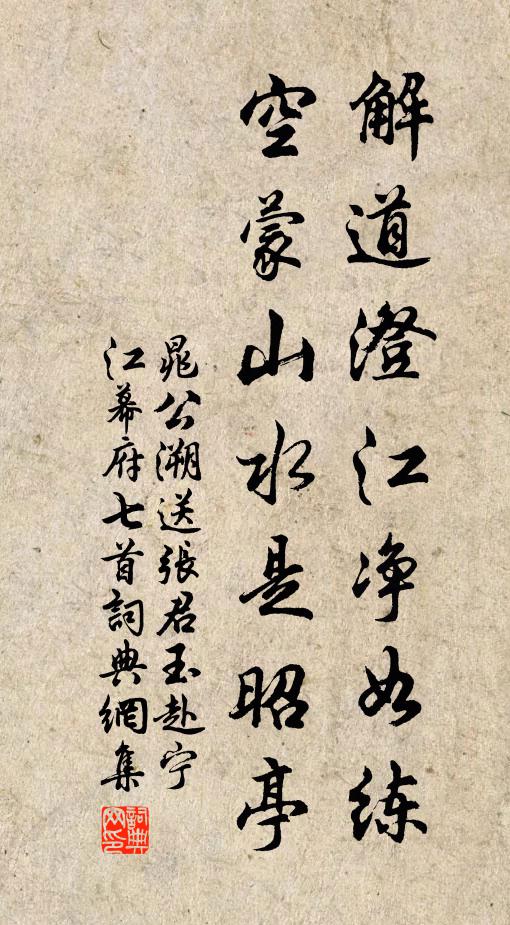 解道澄江净如练
空蒙山水是昭亭
晁公溯送張君玉赴宁
江幕府七首詞典網集
詞典网印